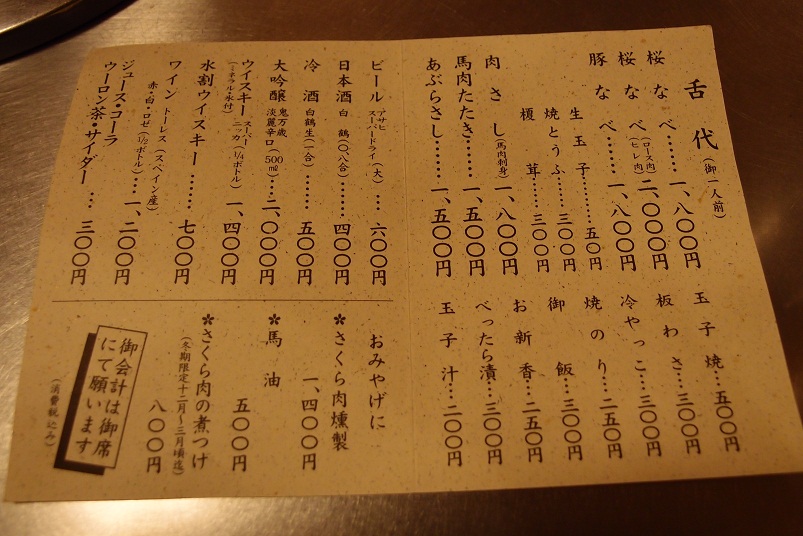 舌代(御一人前)
桜なべ……一、八〇〇円
桜なべ(ロース肉)(ヒレ肉)二、〇〇〇円
豚なべ……一、八〇〇円
生玉子………五〇円
焼とうふ……三〇〇円
榎茸……三〇〇円
肉さし(馬肉刺身)一、八〇〇円
馬肉たたき……一、五〇〇円
あぶらさし……一、五〇〇円
玉子焼……五〇〇円
板わさ……三〇〇円
冷やっこ……三〇〇円
焼のり……二五〇円
御飯……三〇〇円
お新香……二五〇円
べったら漬……三〇〇円
玉子汁……二〇〇円
ビール アサヒスーパードライ(大)…六〇〇円
日本酒 白鶴(〇、八合)……四〇〇円
冷酒 白鶴生(一合)……五〇〇円
大吟醸 鬼万歳淡麗辛口(500㎖)…二、〇〇〇円
ウイスキー スーパーニッカ(¼ボトル)(ミネラル・氷付)一、四〇〇円
水割ウイスキー……七〇〇円
ワイン トーレス(スペイン産)
赤・白・ロゼ(½ボトル)…一、二〇〇円
ジュース・コーラ
ウーロン茶・サイダー…三〇〇円
おみやげに
*さくら肉燻製
一、四〇〇円
*馬油
五〇〇円
*さくら肉の煮つけ
(冬期限定十二月〜三月頃迄)
八〇〇円
御会計は御席
にて願います
(消費税込み)